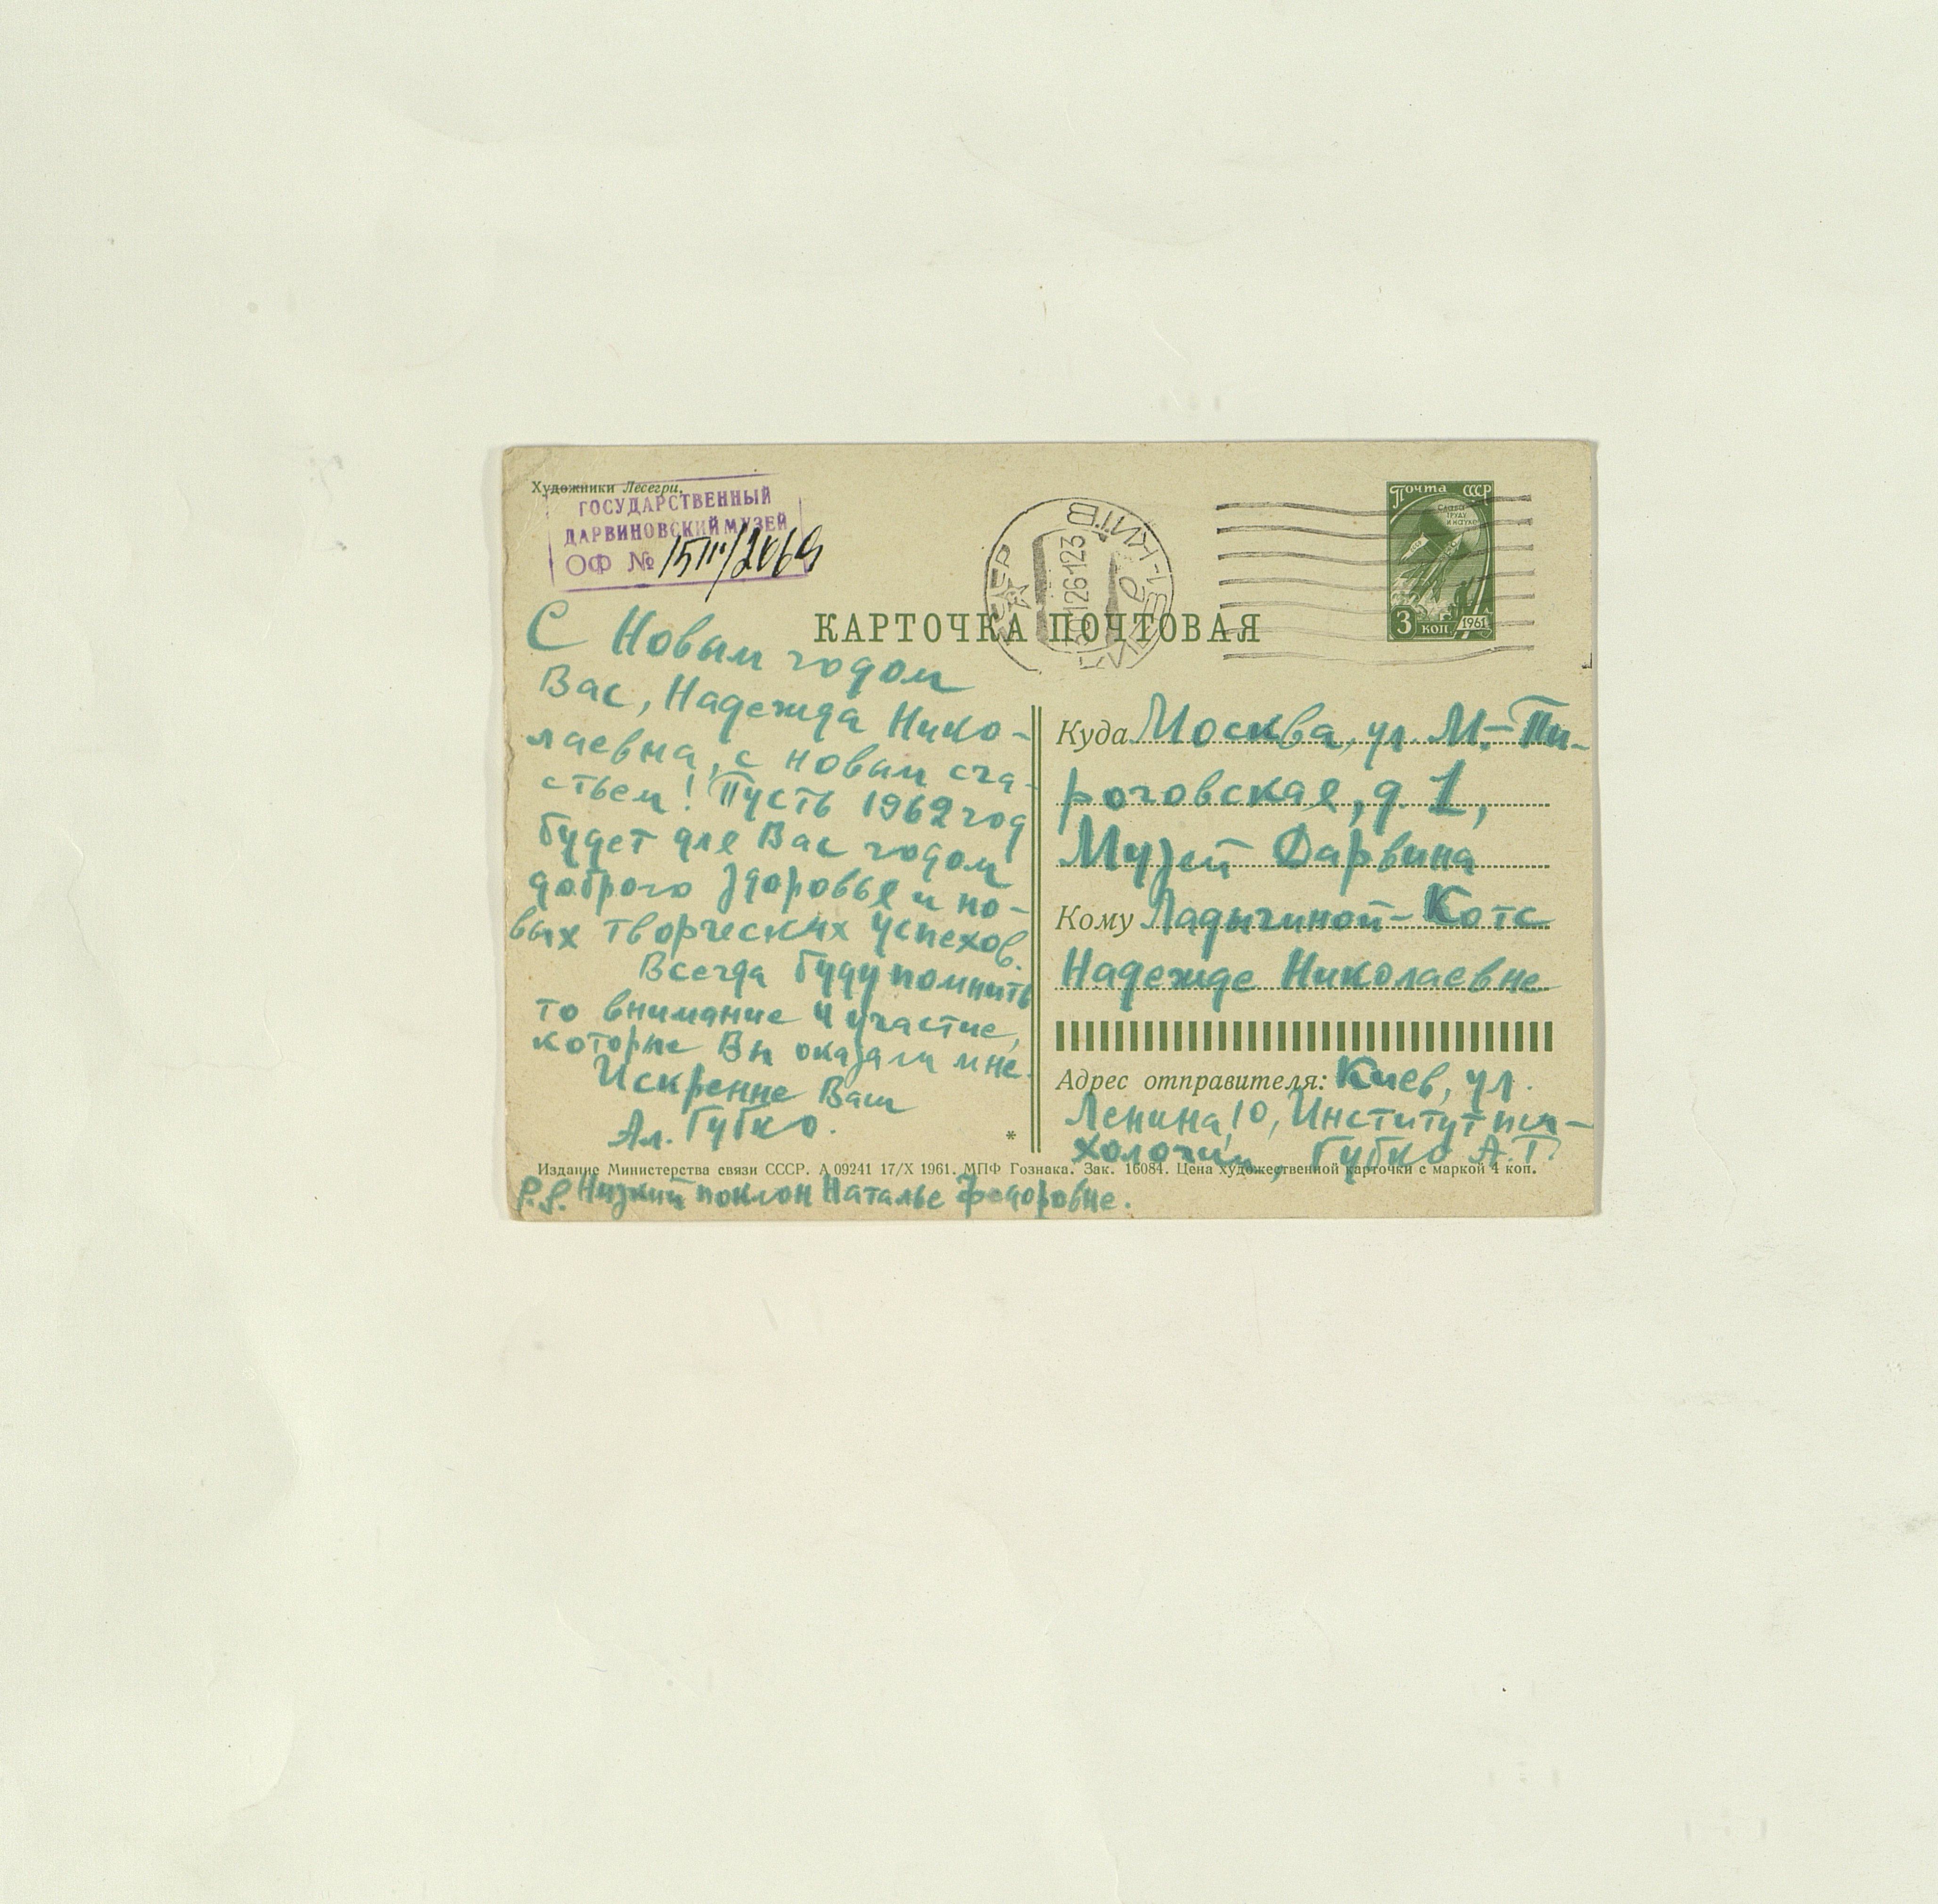 Художники Лесегри.
ГОСУДАРСТВЕННЫЙ
ДАРВИНОВСКИЙ МУЗЕЙ
ОФ №
КИЇВ
Почта СССР
Слава
труду
и науке
3 коп 1961
КАРТОЧКА ПОЧТОВАЯ
С Новым годом
Вас, Надежда Нико-
лаевна, с новым сча-
стьем! Пусть 1962 год
будет для Вас годом
доброго здоровья и но-
вых творческих успехов.
Всегда буду помнить
то внимание и участие,
которые Вы оказали мне.
Искренне Ваш
Ал. Губко.
*
Куда Москва, ул. М.-Пи-
роговская, д. 1,
Музей Дарвина
Кому Ладыгиной-Котс
Надежде Николаевне
Адрес отправителя: Киев, ул.
Ленина, 10, Институт пси-
хологии, Губко А.Т.
Издание Министерства связи СССР. А 09241 17/X 1961. МПФ Гознака. Зак. 16084. Цена художественной карточки с маркой 4 коп.
P.S. Низкий поклон Наталье Федоровне.